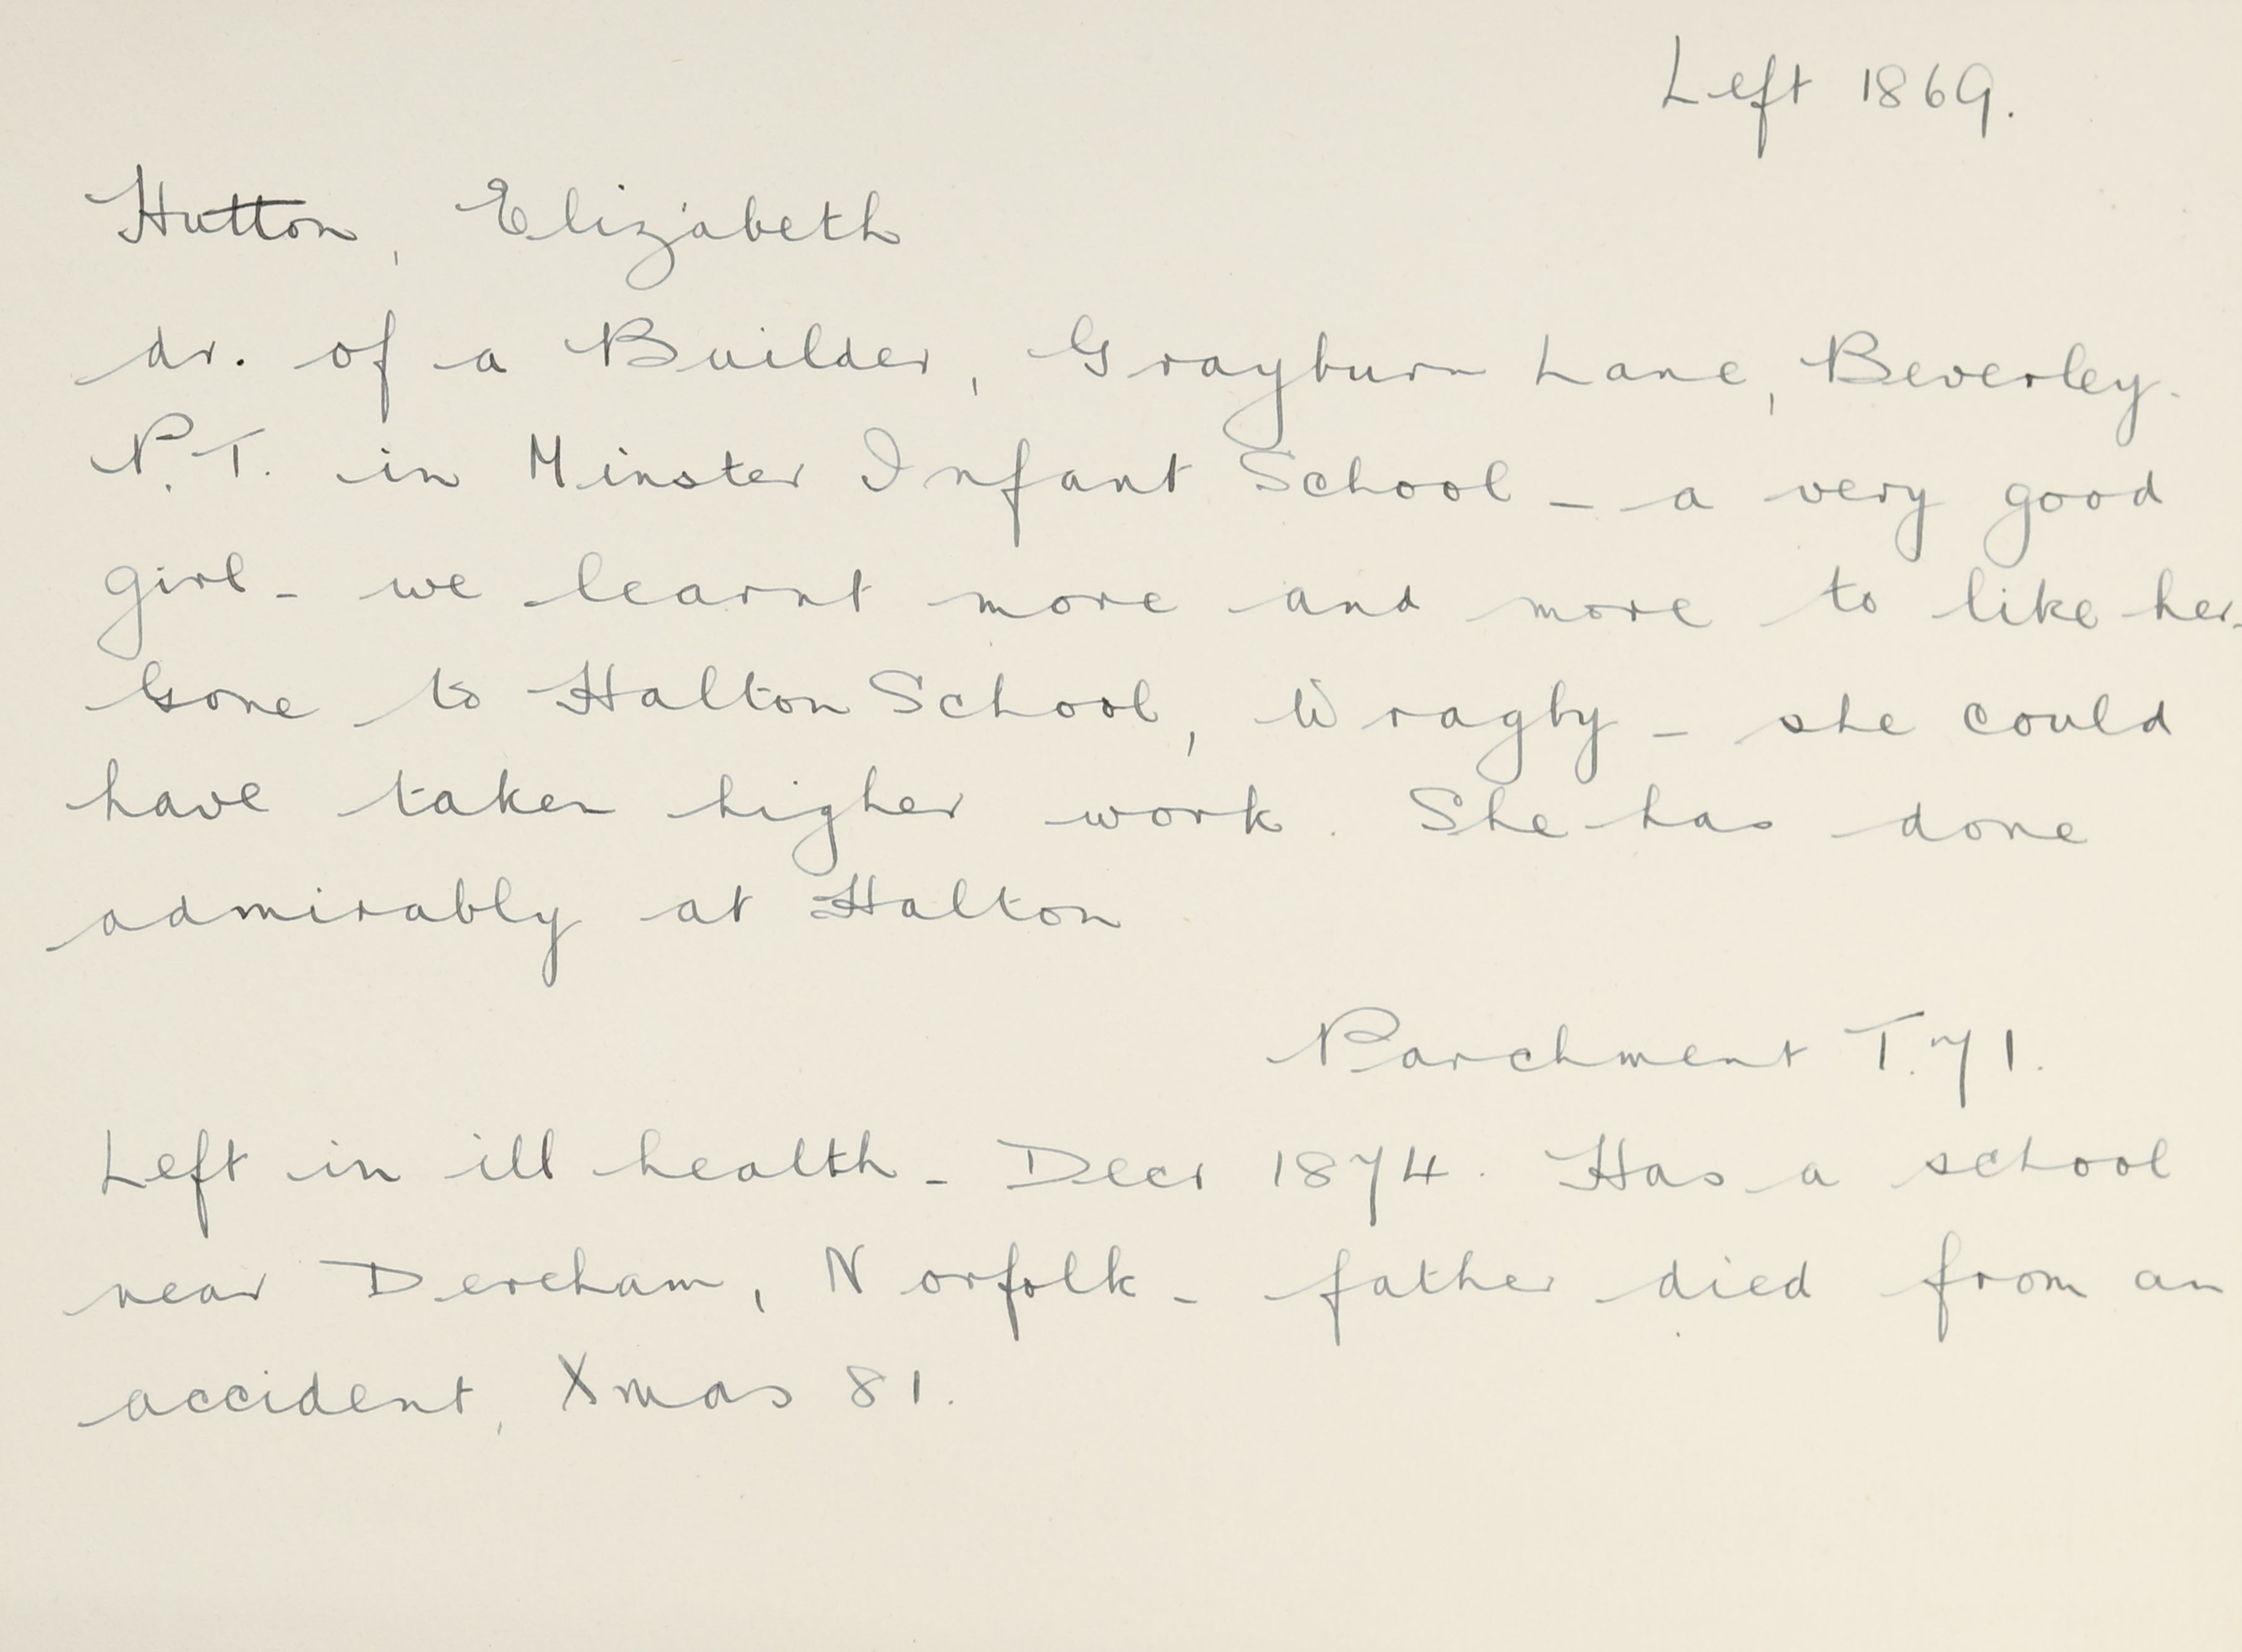 Left 1869.
Hutton, Elizabeth
dr. of a Builder, Grayburn Lane, Beverley.
P.T. in Minster Infant School - a very good
girl - we learnt more and more to like her.
Gone to Halton School, Wragby - she could
have taken higher work. She has done
admirably at Halton
Parchment T.71.
Left in ill health - Decr 1874. Has a school
near Dereham, Norfolk - father died from an
accident, Xmas 81.